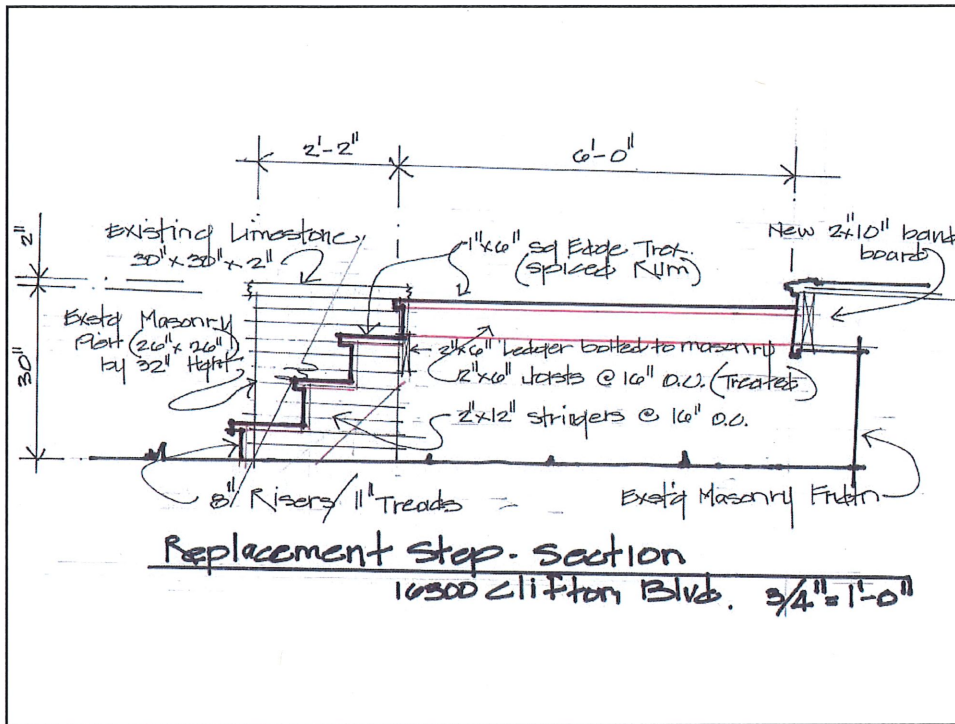 2'-2"
6'-0"
2"
30"
Existing Limestone
30"x30"x2"
1"x6" Sq Edge Trex.
(Spliced Rim)
New 2x10" band
board
Exst'g Masonry
(26"x26")
by 32" Hght.
2"x6" Ledger bolted to masonry
2"x6" Joists @ 16" O.C. (Treated)
2"x12" stringers @ 16" O.C.
8" Risers/11" Treads
Exst'g Masonry Fndtn
Replacement Step - Section
16300 Clifton Blvd. 3/4"=1'-0"